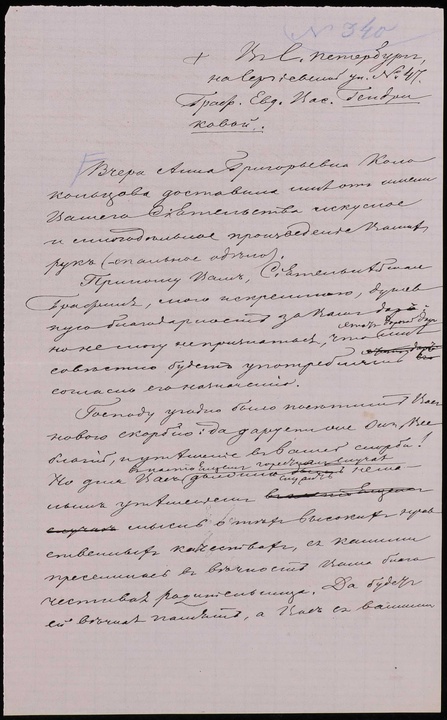 № 340
+ Въ С. Петербургъ,
на Сергіевской ул. № 47.
Граф. Евд. Вас. Гендри
ковой.
Вчера Анна Григорьевна Коло
кольцова доставила мнѣ отъ имени
Вашего Сіятельства искусное
и многодѣльное произведеніе Вашихъ
рукъ (спальное одѣяло).
Приношу Вамъ, Сіятельнѣйшая
Графиня, мою искреннюю, душев
ную благодарность за Вашъ даръ;
но не могу не признаться, что мнѣ
этотъ даръ
совѣстно будетъ употреблять
согласно его назначенію.
Господу угодно было посѣтить Васъ
новою скорбію: да даруетъ же Онъ, Все
благій, и утѣшеніе въ Вашей скорби!
Но для Васъ въ настоящемъ горестномъ случаѣ
должно служить нема-
лымъ утѣшеніемъ
мысль о тѣхъ высокихъ нрав
ственныхъ качествахъ, съ какими
преселилась въ вѣчность Ваша благо
честивая родительница. Да будетъ
ей вѣчная память, а Васъ съ вашими